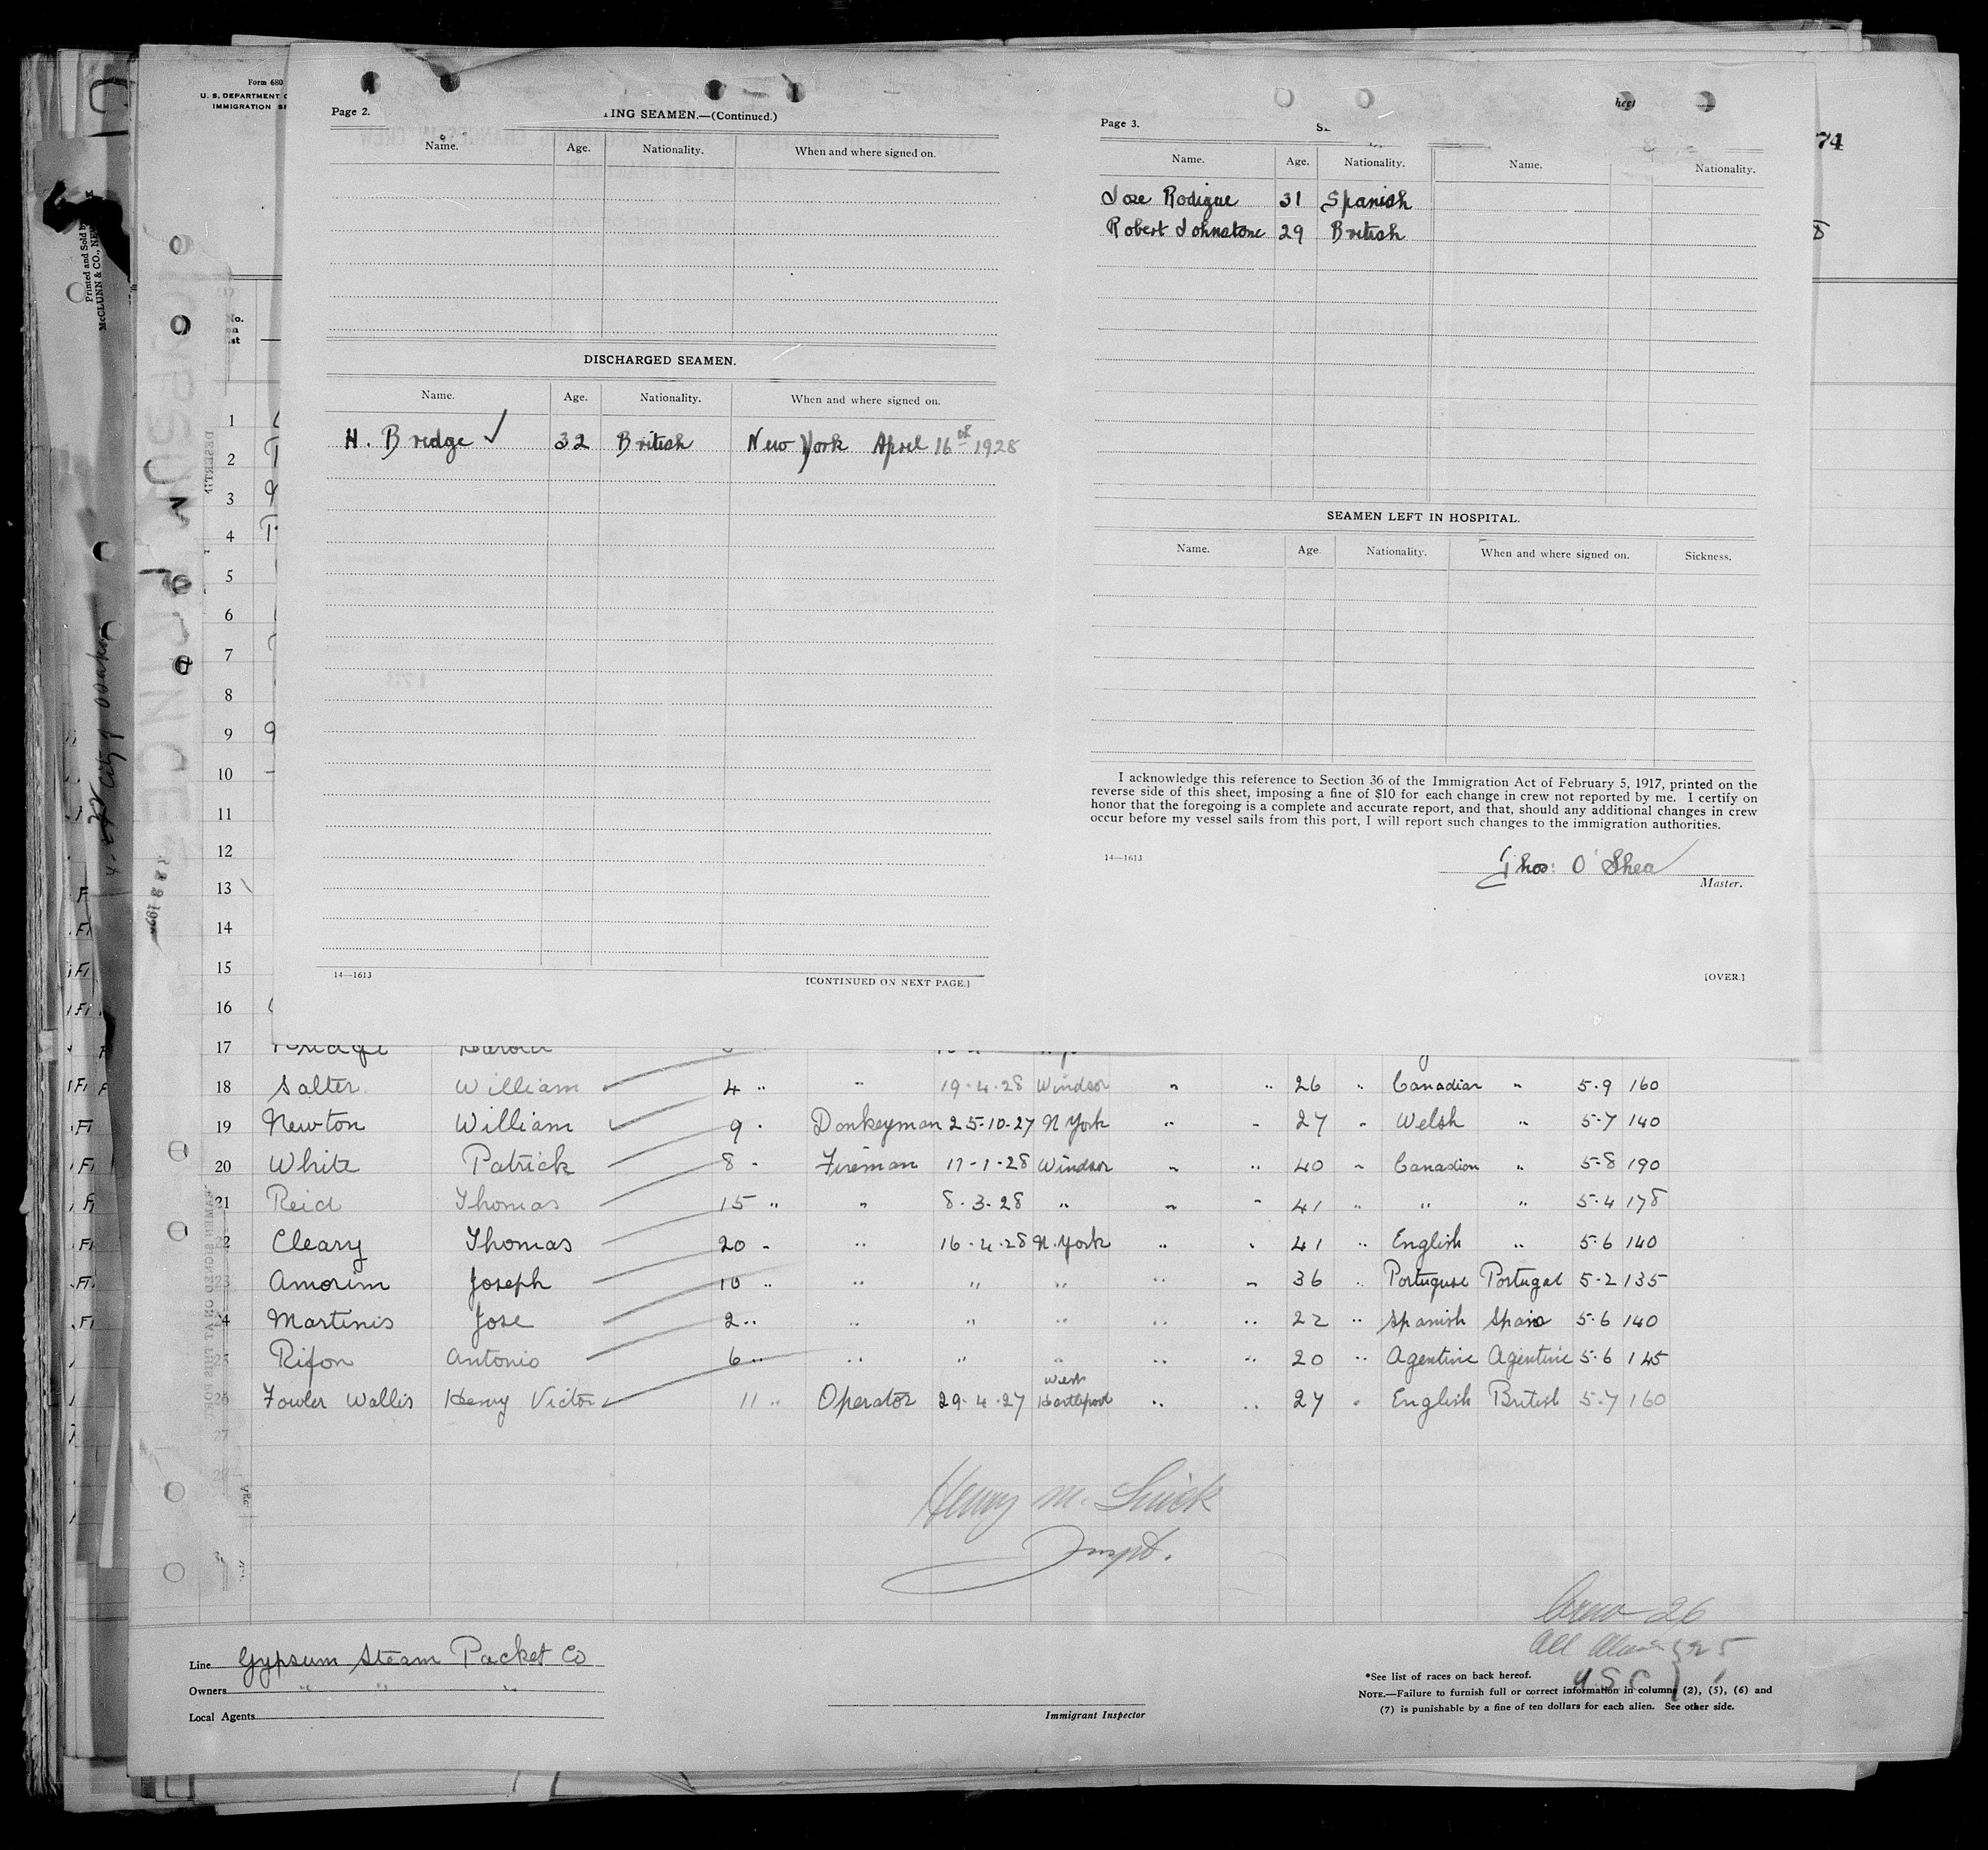 Form 680
U. S. DEPARTMENT
IMMIGRATION
74
Printed and Sold by
McCLUNN & CO., NEW
Page 2.
ING SEAMEN.—(Continued.)
Name. Age. Nationality. When and where signed on.
DISCHARGED SEAMEN.
Name. Age. Nationality. When and where signed on.
H. Bridge ✓ 32 British New York April 16th 1928
14—1613
[CONTINUED ON NEXT PAGE.]
Page 3.
Name. Age. Nationality. Name. Nationality.
Jose Rodigue 31 Spanish
Robert Johnstone 29 British
SEAMEN LEFT IN HOSPITAL.
Name. Age. Nationality. When and where signed on. Sickness.
I acknowledge this reference to Section 36 of the Immigration Act of February 5, 1917, printed on the
reverse side of this sheet, imposing a fine of $10 for each change in crew not reported by me. I certify on
honor that the foregoing is a complete and accurate report, and that, should any additional changes in crew
occur before my vessel sails from this port, I will report such changes to the immigration authorities.
14—1613
Thos: O'Shea
Master.
[OVER.]
1
2
3
4
5
6
7
8
9
10
11
12
13
14
15
16
17 Bridge Harold
18 Salter William 4 " " 19-4-28 Windsor " " 26 " Canadian " 5-9 160
19 Newton William 9 " Donkeyman 25-10-27 N York " " 27 " Welsh " 5-7 140
20 White Patrick 8 " Fireman 17-1-28 Windsor " " 40 " Canadian " 5-8 190
21 Reid Thomas 15 " " 8-3-28 " " " 41 " " " 5-4 178
22 Cleary Thomas 20 " " 16-4-28 N. York " " 41 " English " 5-6 140
23 Amorim Joseph 10 " " " " " " 36 " Portuguse Portugal 5-2 135
24 Martinis Jose 2 " " " " " " 22 " Spanish Spain 5-6 140
25 Rifon Antonio 6 " " " " " " 20 " Agentine Agentine 5-6 145
26 Fowler Wallis Henry Victor 11 " Operator 29-4-27 West Hartlepool " " 27 " English British 5-7 160
27
28
Inspt.
Crew 26
All Aliens 25
U S C 1
Line Gypsum Steam Packet Co
Owners " " "
Local Agents
Immigrant Inspector
*See list of races on back hereof.
NOTE.—Failure to furnish full or correct information in columns (2), (5), (6) and
(7) is punishable by a fine of ten dollars for each alien. See other side.